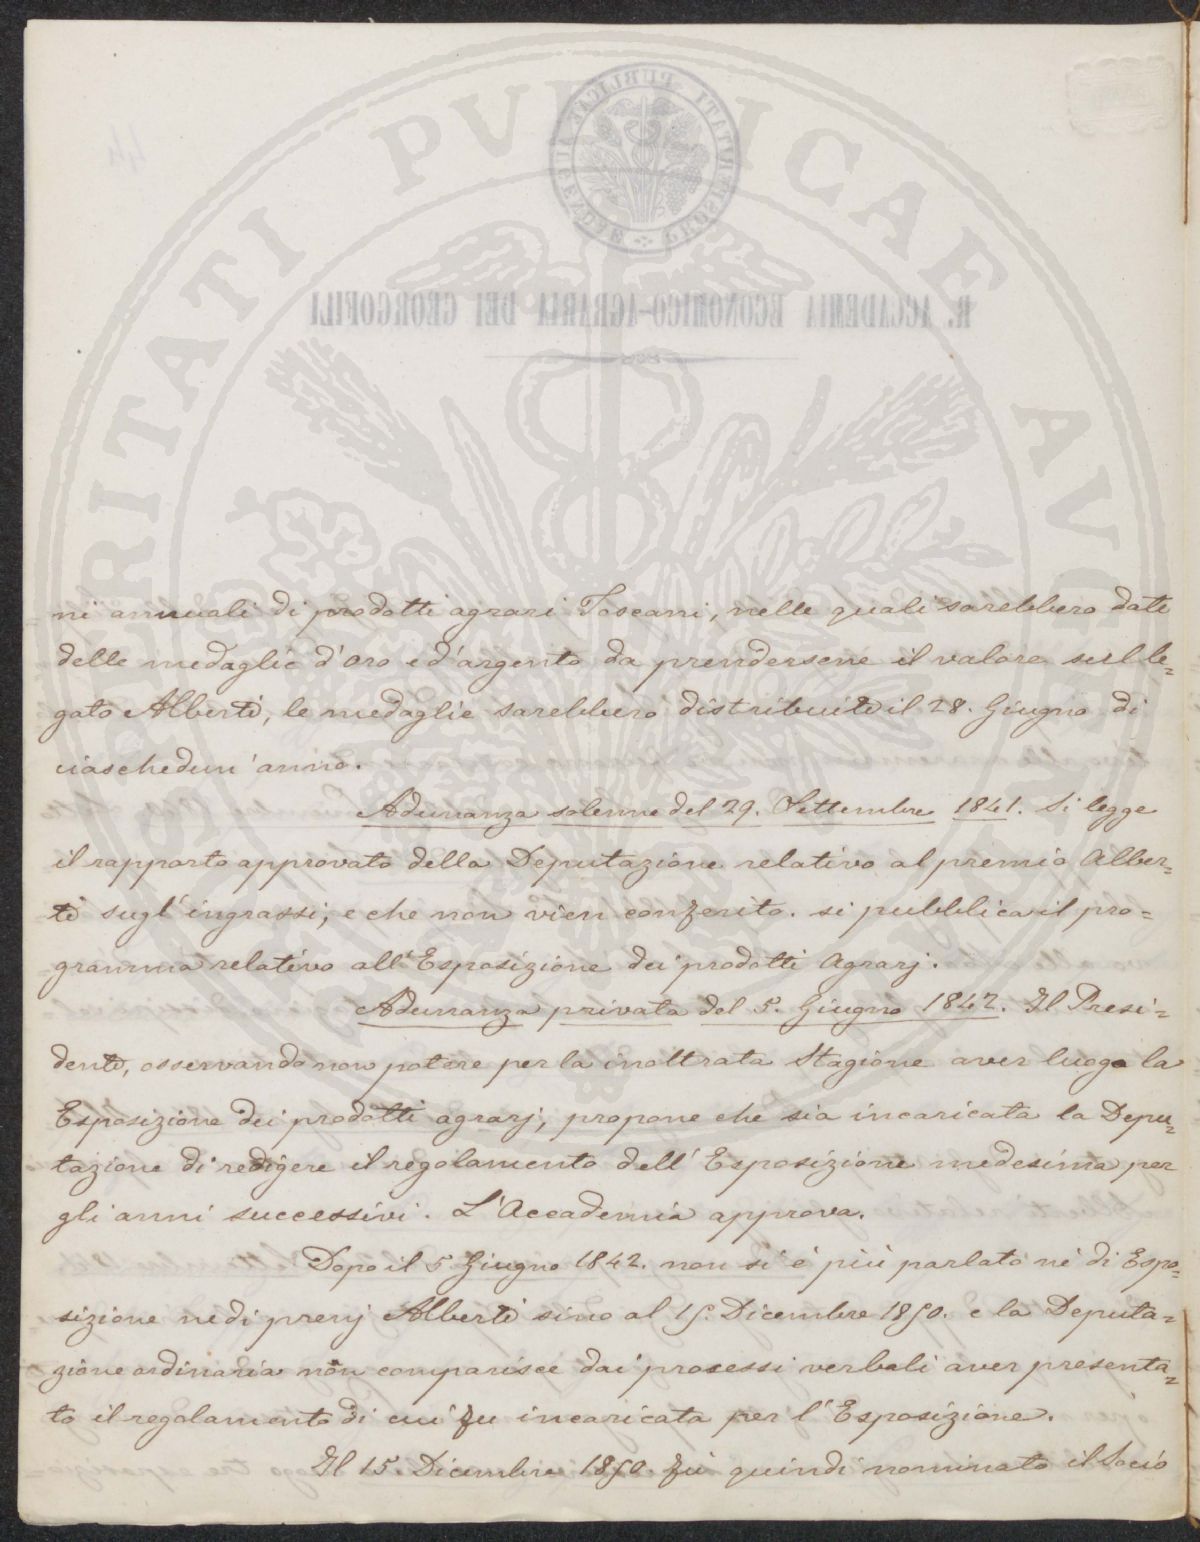 PROSPERITATI PUBLICAE AUGENDAE
R. ACCADEMIA ECONOMICO-AGRARIA DEI GEORGOFILI
ni annuali di prodotti agrari Toscani, nelle quali sarebbero date
delle medaglie d'oro e d'argento da prendersene il valore sul le=
gato Alberti, le medaglie sarebbero distribuite il 28. Giugno di
ciaschedun'anno.
Adunanza solenne del 29. Settembre 1841. Si legge
il rapporto approvato della Deputazione relativo al premio Alber=
ti sugl'ingrassi, e che non vien conferito. si pubblica il pro=
gramma relativo all'Esposizione dei prodotti Agrarj.
Adunanza privata del 5. Giugno 1842. Il Presi=
dente, osservando non potere per la inoltrata Stagione aver luogo la
Esposizione dei prodotti agrarj, propone che sia incaricata la Depu=
tazione di redigere il regolamento dell'Esposizione medesima per
gli anni successivi. L'Accademia approva.
Dopo il 5. Giugno 1842. non si è più parlato nè di Espo=
sizione ne di premj Alberti sino al 15. Dicembre 1850. e la Deputa=
zione ordinaria non comparisce dai processi verbali aver presenta=
to il regolamento di cui fu incaricata per l'Esposizione.
Il 15. Dicembre 1850. fù quindi nominato il Socio